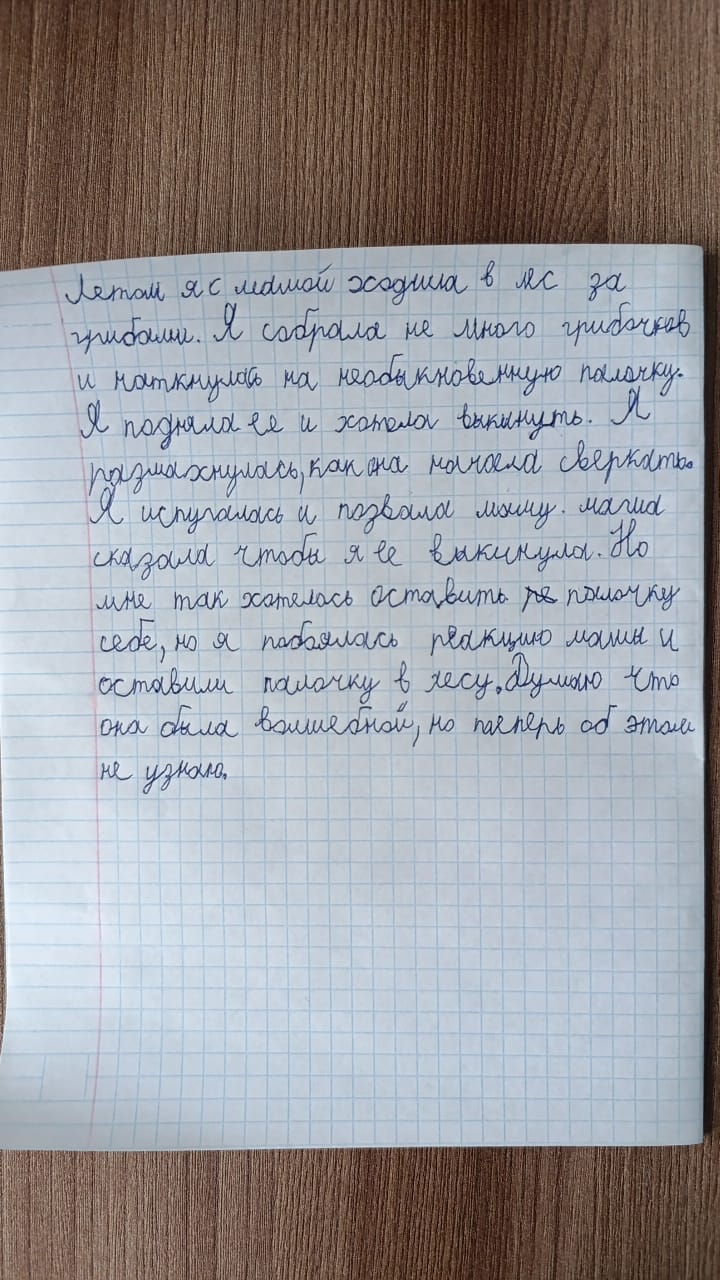 Летом я с мамой ходила в лес за
грибами. Я собрала не много грибочков
и наткнулась на необыкновенную палочку.
Я подняла ее и хотела выкинуть. Я
размахнулась, как она начала сверкать.
Я испугалась и позвала маму. мама
сказала чтобы я ее выкинула. Но
мне так хотелось оставить палочку
себе, но я побоялась реакцию мамы и
оставили палочку в лесу. Думаю что
она была волшебной, но теперь об этом
не узнаю.